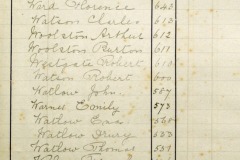 Ward Florence 643
Watson Charles 613
Woolston Arthur 612
Woolston Burton 611
Westgate Robert 610
Watson Robert 600
Watlow John 587
Warner Emily 573
Watlow 560
Watlow Drury 553
Watlow Thomas 551